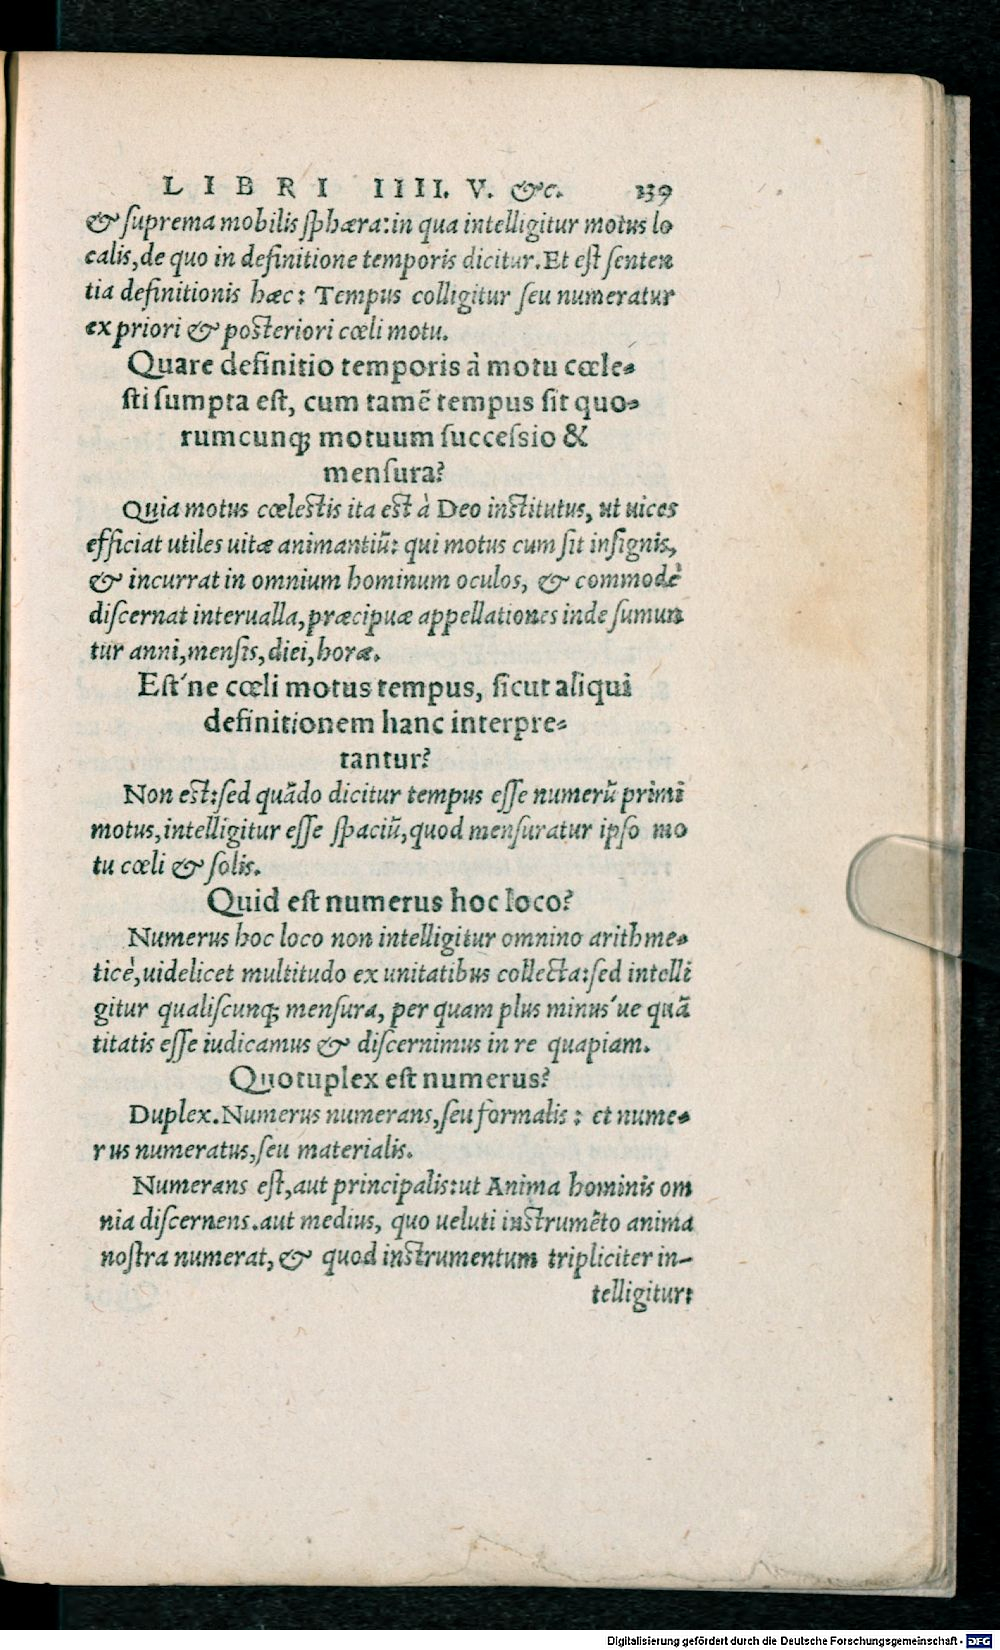 LIBRI IIII. V. &c. 139
& ſuprema mobilis ſphæra: in qua intelligitur motus lo
calis, de quo in definitione temporis dicitur. Et eſt ſenten
tia definitionis hæc: Tempus colligitur ſeu numeratur
ex priori & poſteriori cœli motu.
Quare definitio temporis à motu cœle-
ſti ſumpta eſt, cum tamẽ tempus ſit quo-
rumcunq; motuum ſucceſsio &
menſura?
Quia motus cœleſtis ita eſt à Deo inſtitutus, ut uices
efficiat utiles uitæ animantiũ: qui motus cum ſit inſignis,
& incurrat in omnium hominum oculos, & commodè
diſcernat interualla, præcipuæ appellationes inde ſumun
tur anni, menſis, diei, horæ.
Eſt´ne cœli motus tempus, ſicut aliqui
definitionem hanc interpre-
tantur?
Non eſt: ſed quãdo dicitur tempus eſſe numerũ primi
motus, intelligitur eſſe ſpaciũ, quod menſuratur ipſo mo
tu cœli & ſolis.
Quid eſt numerus hoc loco?
Numerus hoc loco non intelligitur omnino arithme-
ticè, uidelicet multitudo ex unitatibus collecta: ſed intelli
gitur qualiſcunq; menſura, per quam plus minus´ue quã
titatis eſſe iudicamus & diſcernimus in re quapiam.
Quotuplex eſt numerus?
Duplex. Numerus numerans, ſeu formalis: et nume-
rus numeratus, ſeu materialis.
Numerans eſt, aut principalis: ut Anima hominis om
nia diſcernens. aut medius, quo ueluti inſtrumẽto anima
noſtra numerat, & quod inſtrumentum tripliciter in-
telligitur:
Digitalisierung gefördert durch die Deutsche Forschungsgemeinschaft - DFG